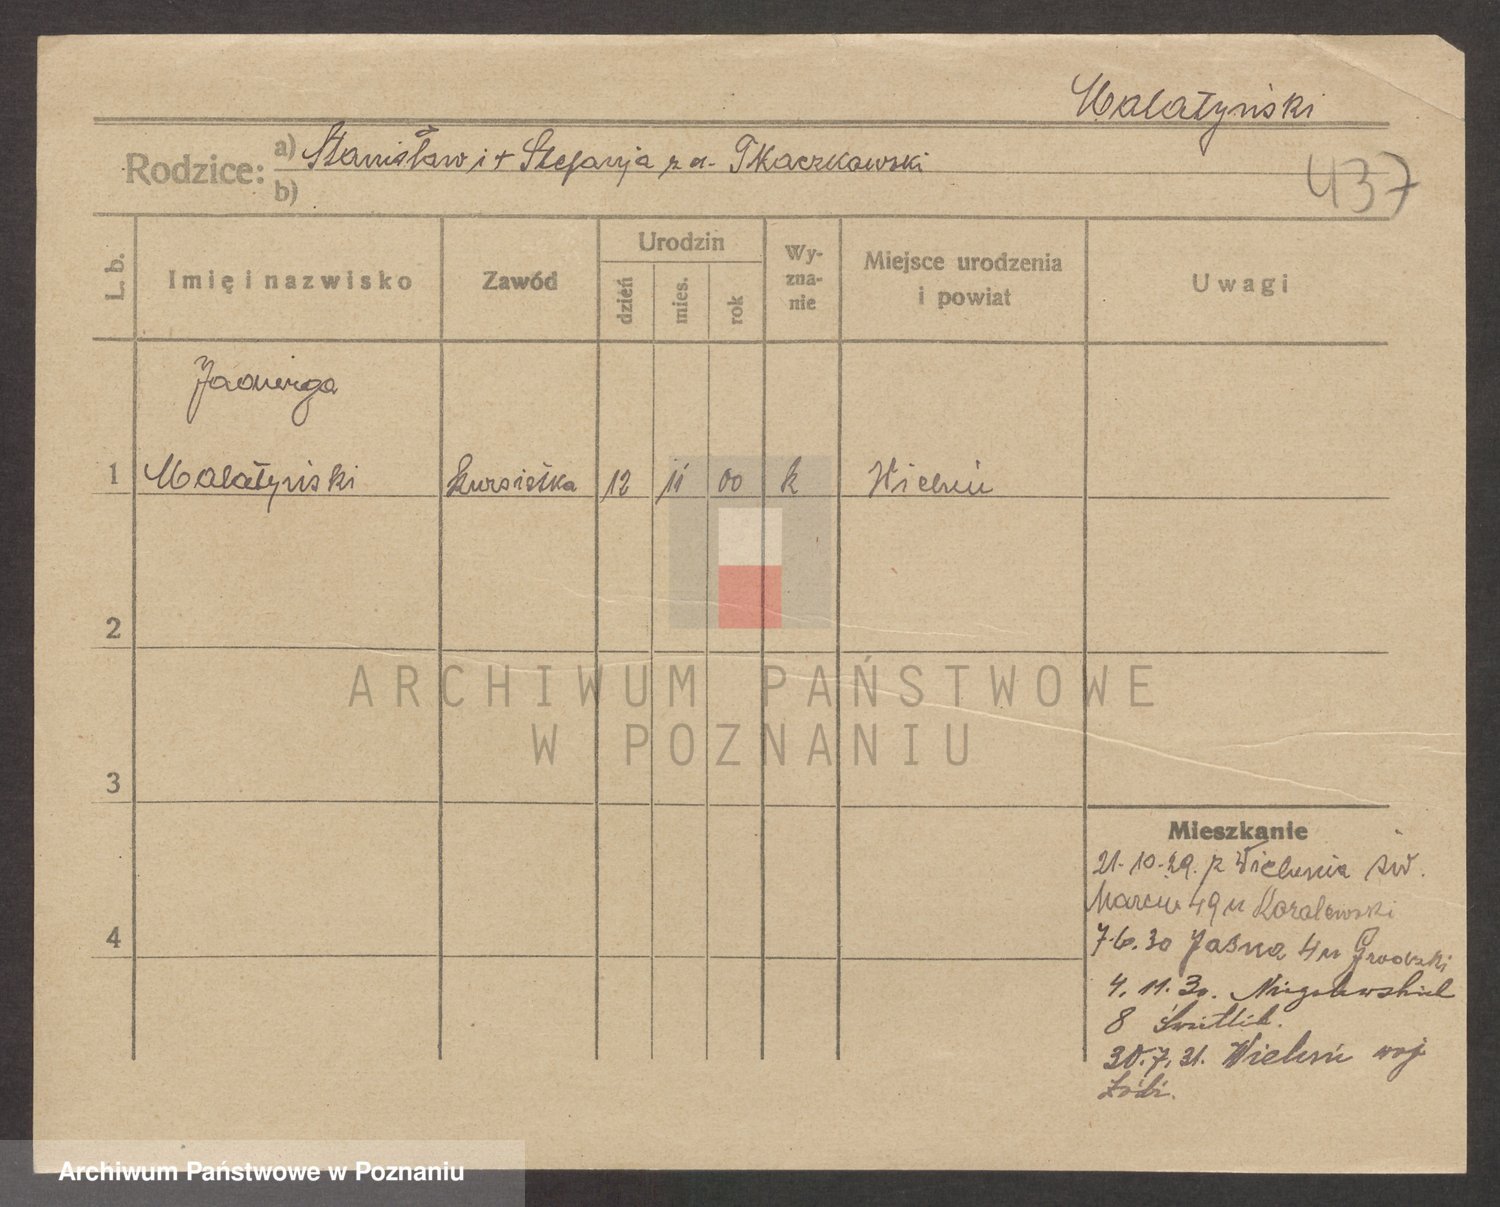 Malatyński
Rodzice: a) Stanisław i + Stefanja z d. Tkaczkowski
b)
437
L. b.
Imię i nazwisko
Zawód
Urodzin
dzień
mies.
rok
Wy-
zna-
nie
Miejsce urodzenia
i powiat
Uwagi
Jadwiga
1 Malatyński Kursistka 12 11 00 k Wieluń
2
3
4
Mieszkanie
21.10.29. z Wielunia św.
Marcin 49 u Koralewski
7.6.30 Jasna 4 u Grodzki
4.11.30. Niegolewskich
8 Świtlik.
30.7.31. Wieluń woj
Łódź.
ARCHIWUM PAŃSTWOWE
W POZNANIU
Archiwum Państwowe w Poznaniu